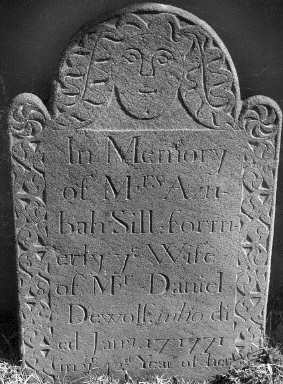 In Memory
of Mrs Azu-
bah Sill, form
erly ye Wife
of Mr. Daniel
Dewolf, who di
ed Janr. 17 1771
in ye Year of her